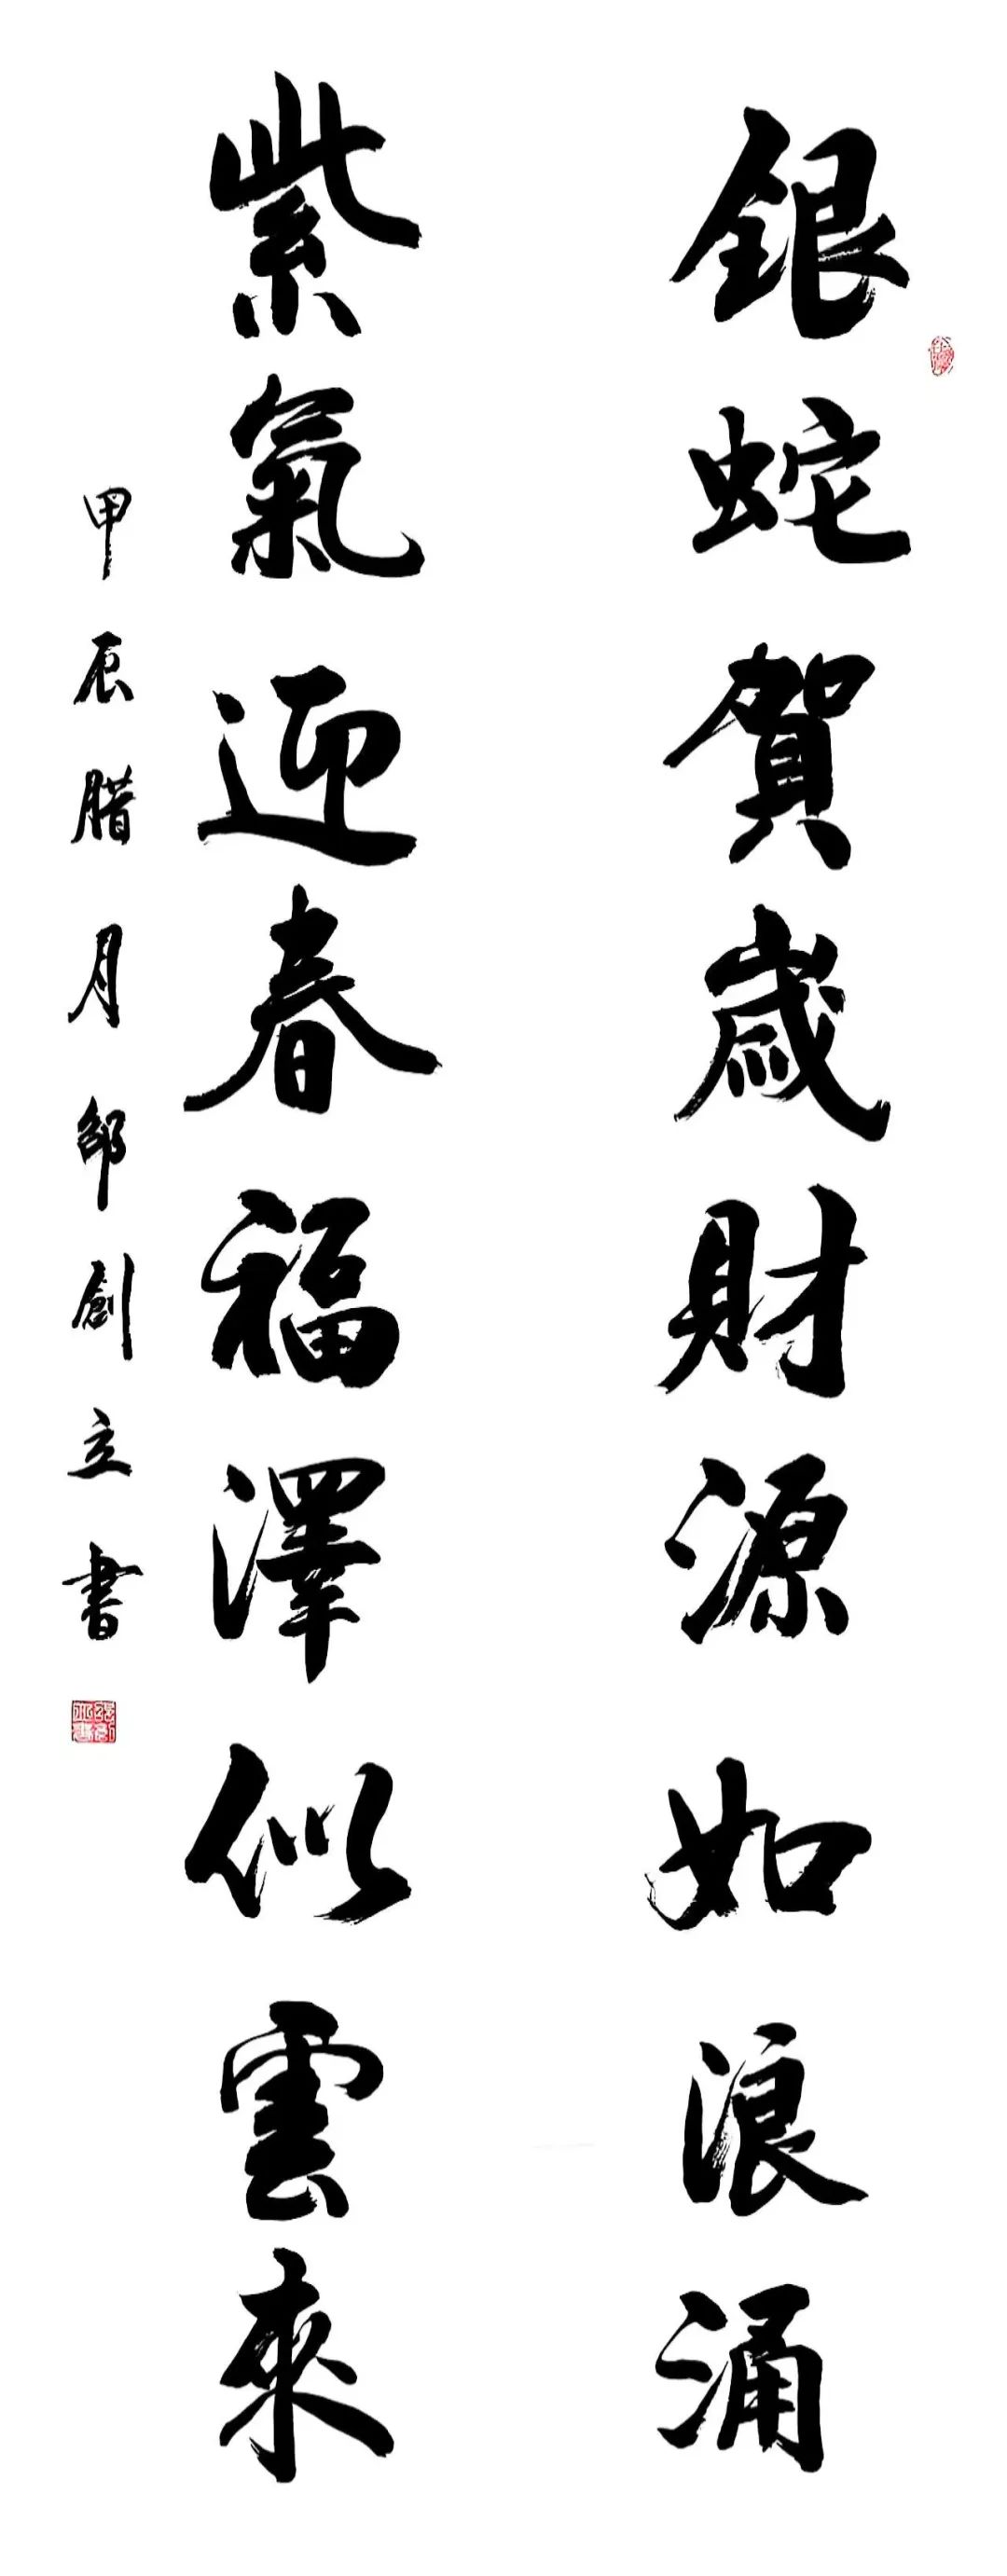 銀蛇賀歲財源如浪涌
紫氣迎春福澤似雲來
甲辰腊月邹創立書